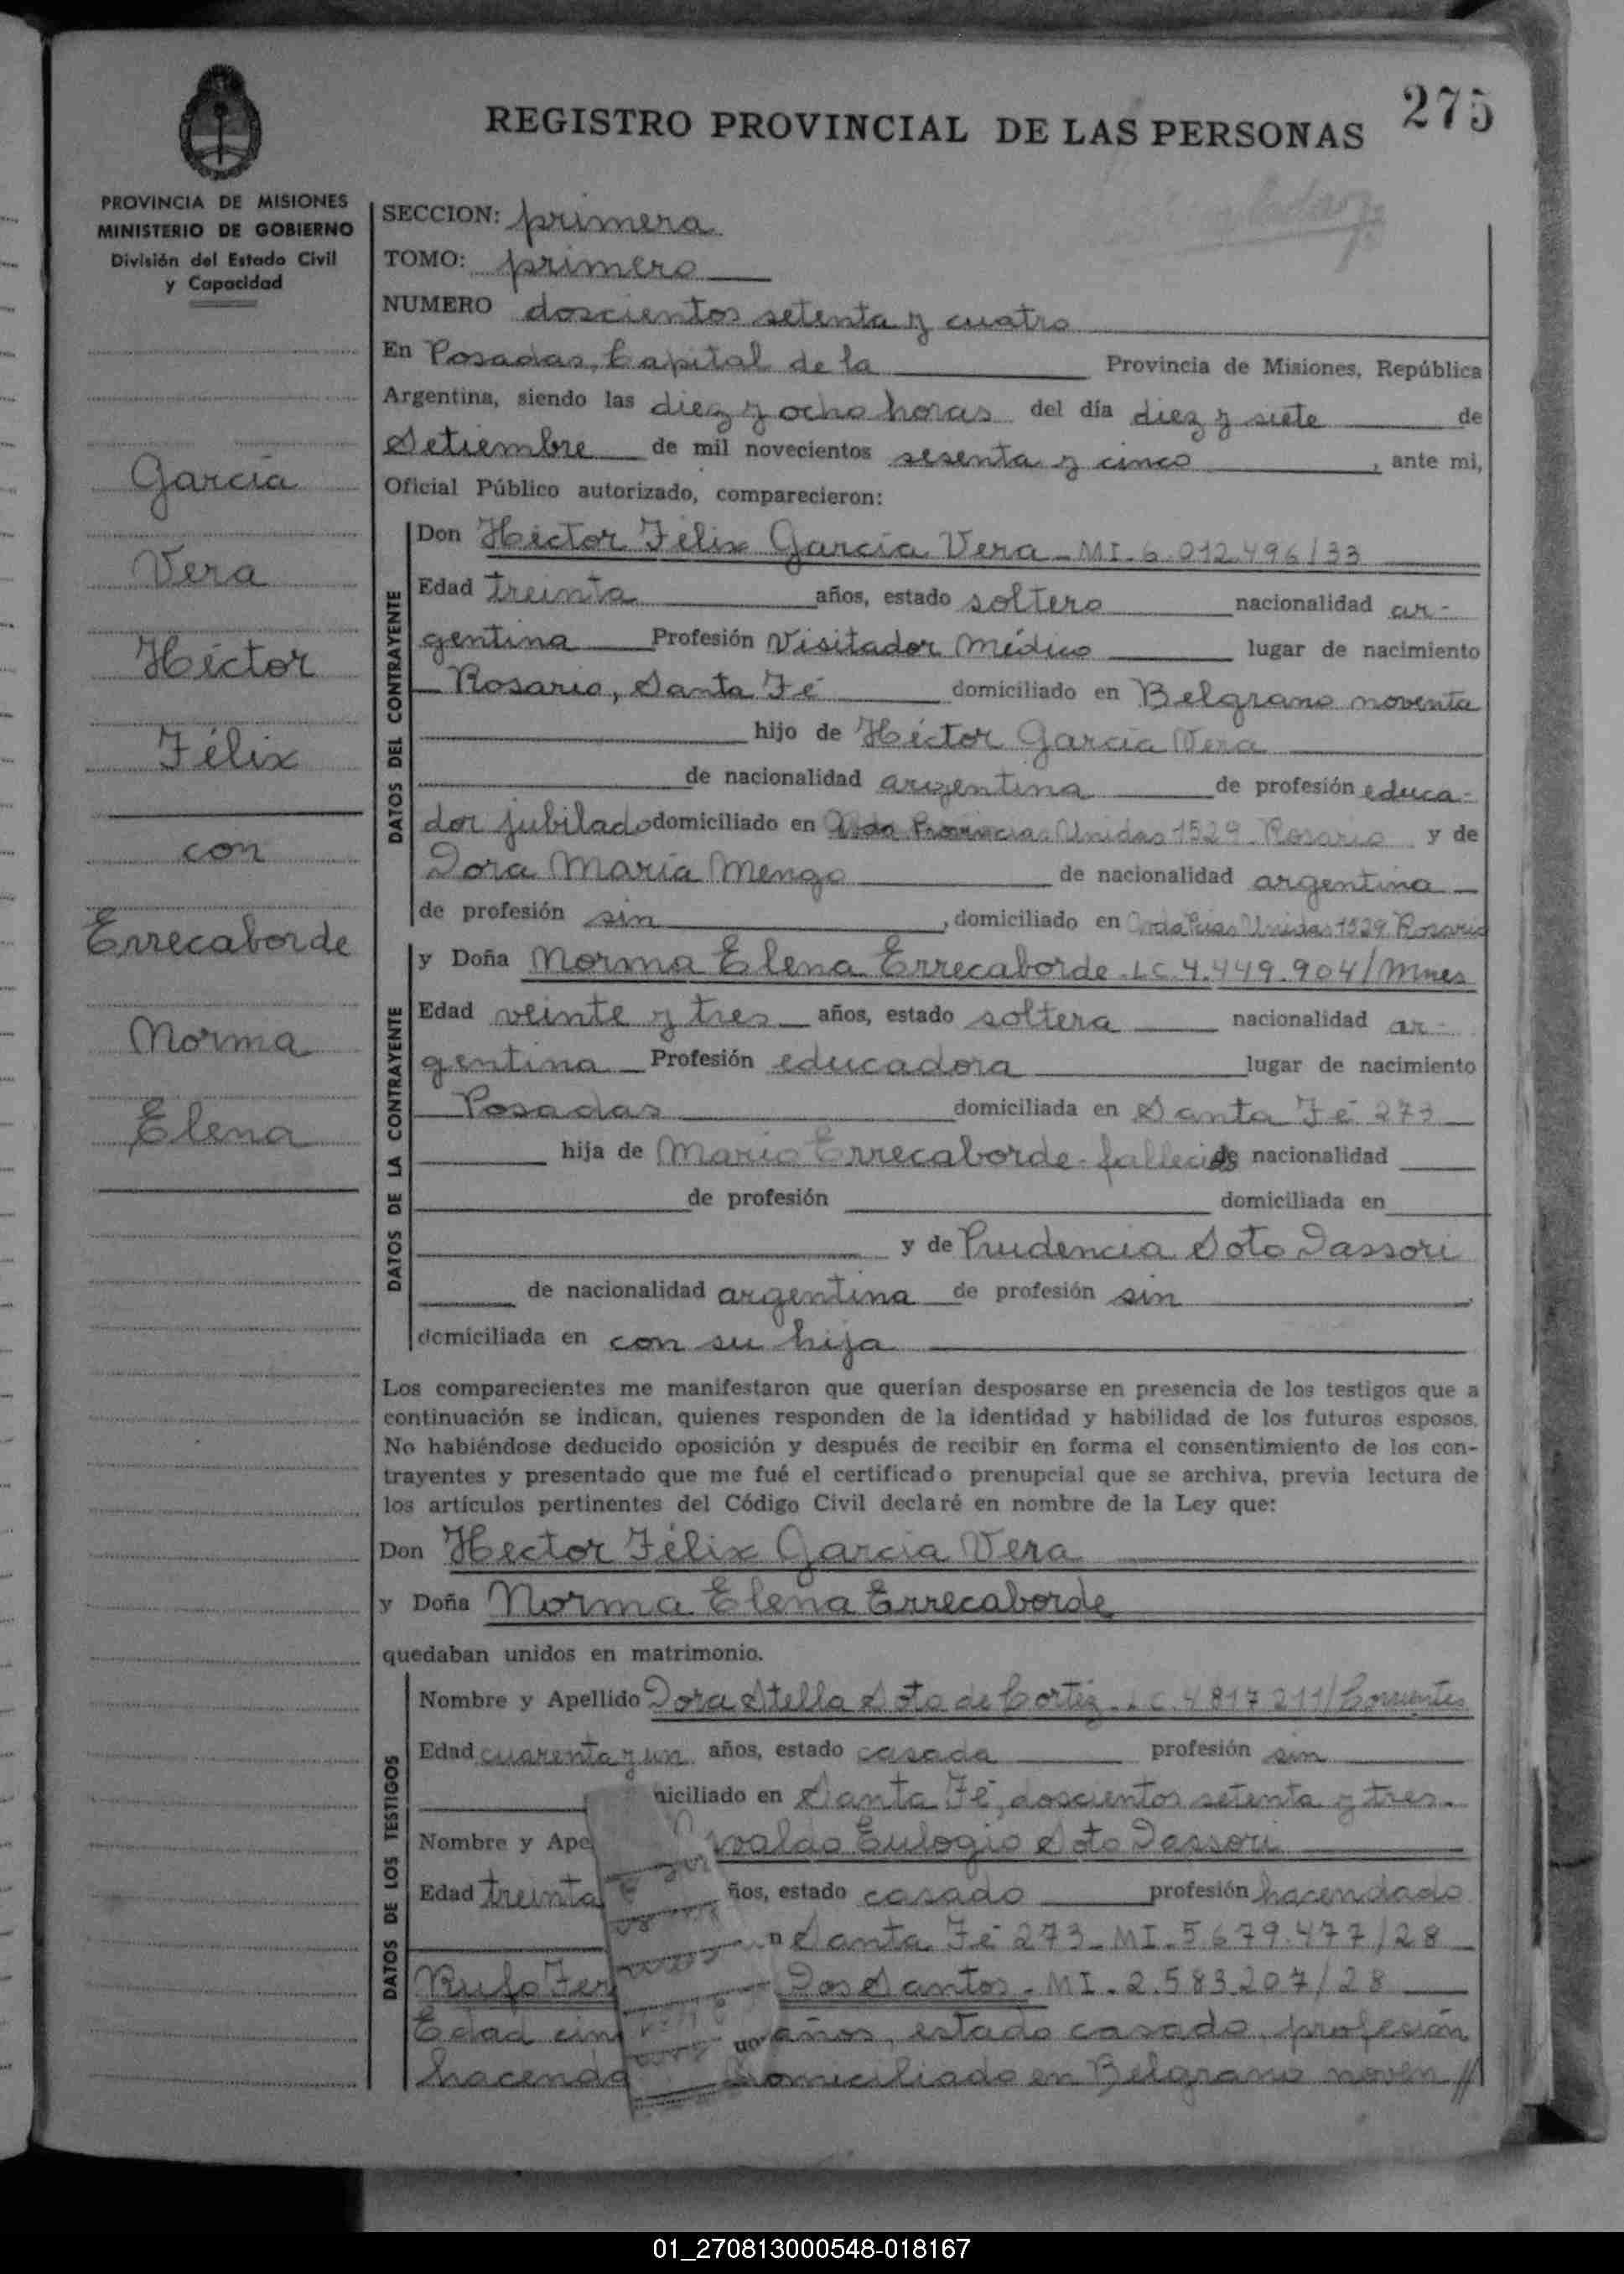 275
REGISTRO PROVINCIAL DE LAS PERSONAS
PROVINCIA DE MISIONES
MINISTERIO DE GOBIERNO
División del Estado Civil
y Capacidad
García
Vera
Héctor
Félix
con
Errecaborde
Norma
Elena
SECCION: primera
TOMO: primero
NUMERO doscientos setenta y cuatro
En Posadas, Capital de la Provincia de Misiones, República
Argentina, siendo las diez y ocho horas del día diez y siete de
Setiembre de mil novecientos sesenta y cinco, ante mi,
Oficial Público autorizado, comparecieron:
DATOS DEL CONTRAYENTE
Don Héctor Félix García Vera - MI. 6.012.496/33
Edad treinta años, estado soltero nacionalidad ar-
gentina Profesión Visitador Médico lugar de nacimiento
Rosario, Santa Fé domiciliado en Belgrano noventa
hijo de Héctor García Vera
de nacionalidad argentina de profesión educa-
dor jubilado domiciliado en Provincias Unidas 1529 Rosario y de
Dora María Mengo de nacionalidad argentina
de profesión sin, domiciliado en Unidas 1529 Rosario
DATOS DE LA CONTRAYENTE
y Doña Norma Elena Errecaborde. LC. 4.449.904/Mnes
Edad veinte y tres años, estado soltera nacionalidad ar-
gentina Profesión educadora lugar de nacimiento
Posadas domiciliada en Santa Fé 273
hija de Mario Errecaborde - fallecido de nacionalidad
de profesión domiciliada en
y de Prudencia Soto Dassori
de nacionalidad argentina de profesión sin
domiciliada en con su hija
Los comparecientes me manifestaron que querían desposarse en presencia de los testigos que a
continuación se indican, quienes responden de la identidad y habilidad de los futuros esposos.
No habiéndose deducido oposición y después de recibir en forma el consentimiento de los con-
trayentes y presentado que me fué el certificado prenupcial que se archiva, previa lectura de
los artículos pertinentes del Código Civil declaré en nombre de la Ley que:
Don Hector Félix Garcia Vera
y Doña Norma Elena Errecaborde
quedaban unidos en matrimonio.
DATOS DE LOS TESTIGOS
Nombre y Apellido Dora Stella Soto de Cortéz. LC. 4.817.211/Corrientes
Edad cuarenta y un años, estado casada profesión sin
niciliado en Santa Fé, doscientos setenta y tres.
Nombre y Ape valdo Eulogio Soto Dassori
Edad treinta ños, estado casado profesión hacendado
n Santa Fé 273 - MI. 5.679.477/28
Rufo Fer Dos Santos - MI. 2.583.207/28
Edad cin uo años, estado casado, profesión
hacenda domiciliado en Belgrano noven//
01_270813000548-018167